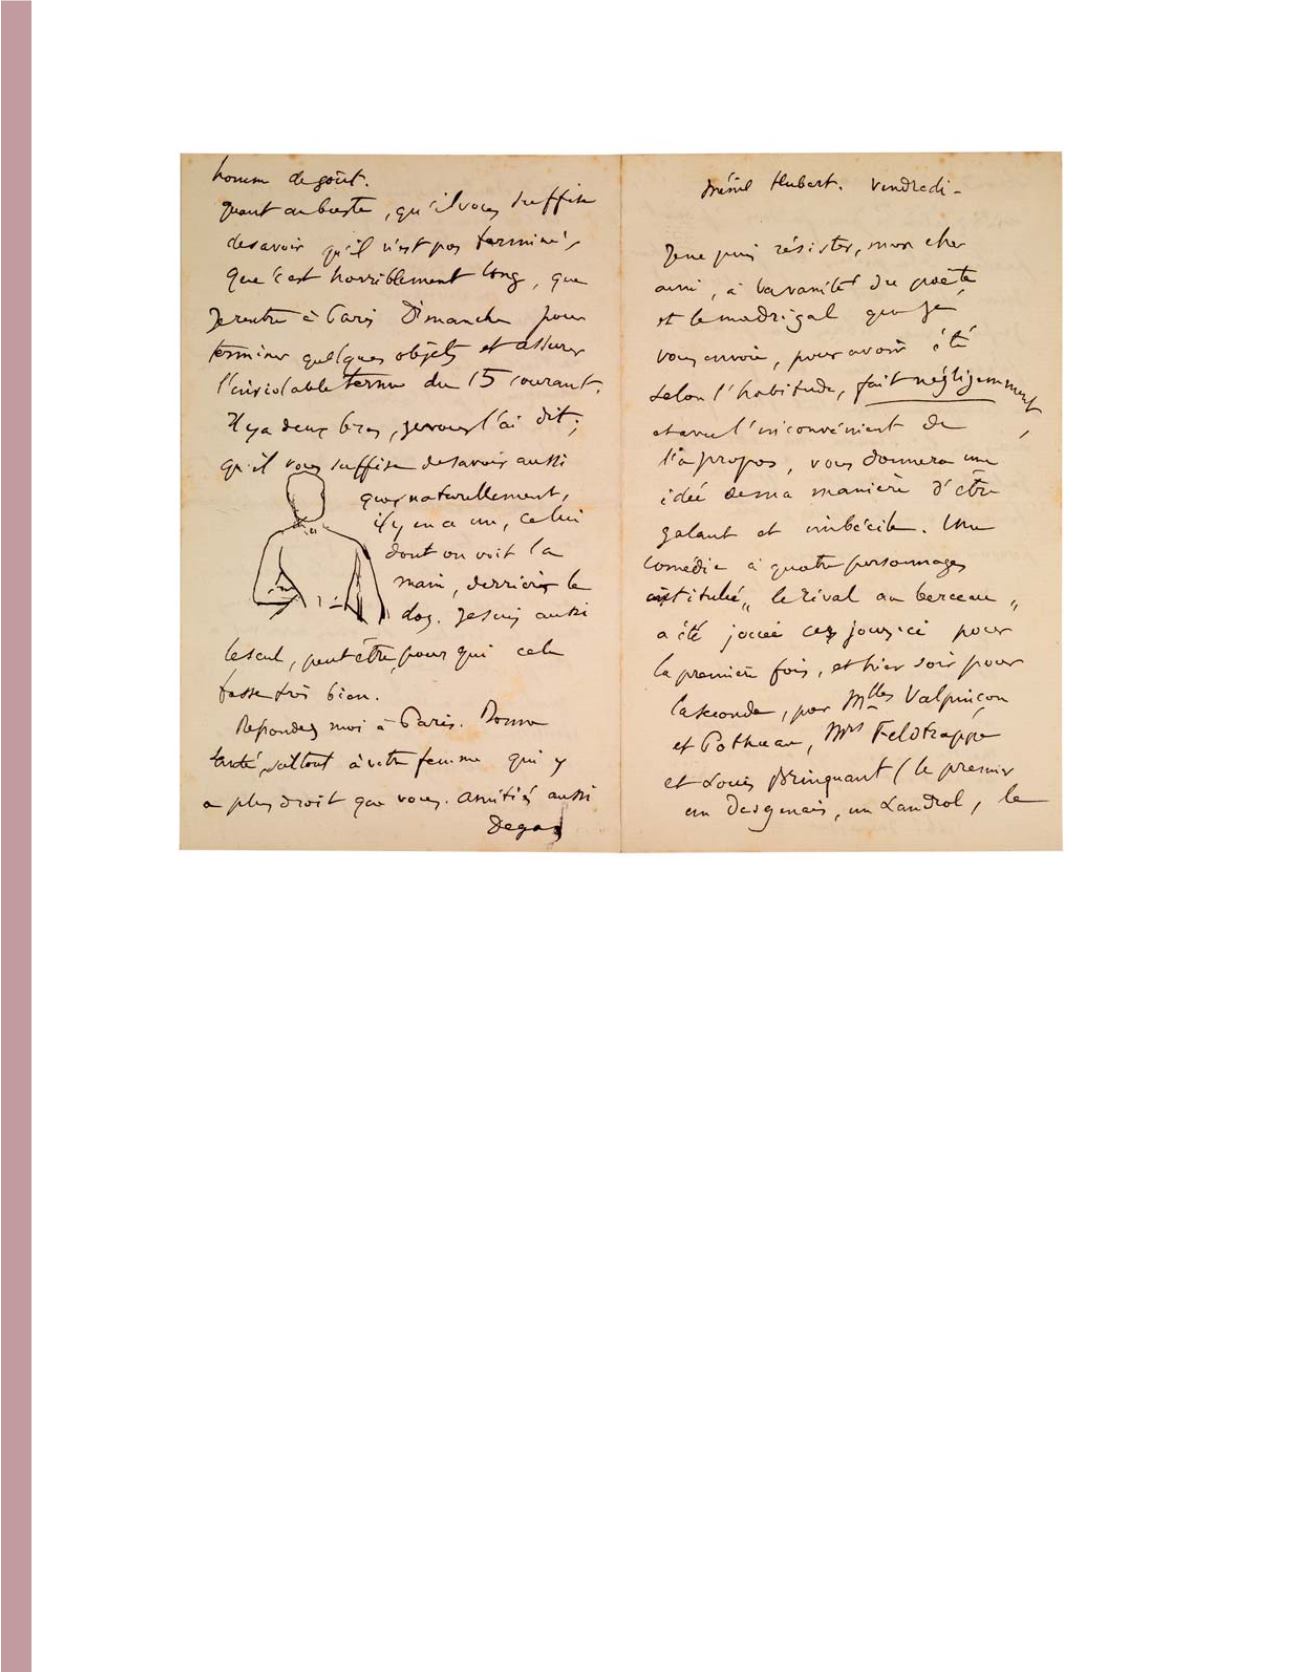 homme de goût.
Quant au buste, qu'il vous suffise
de savoir qu'il n'est pas terminé,
que c'est horriblement long, que
je rentre à Paris Dimanche pour
terminer quelques objets et assurer
l'inviolable terme du 15 courant.
Il y a deux bras, je vous l'ai dit;
qu'il vous suffise de savoir aussi
que, naturellement,
il y en a un, celui
dont on voit la
main, derrière le
dos. Je suis aussi
le seul, peut être, pour qui cela
fasse très bien.
Répondez moi à Paris. Bonne
santé, surtout à votre femme qui y
a plus droit que vous. amitiés aussi
Degas
Ménil Hubert. Vendredi -
Je ne puis résister, mon cher
ami, à la vanité du poète
et le madrigal que je
vous envoie, pour avoir été
selon l'habitude, fait négligemment,
et avec l'inconvénient de
l'à propos, vous donnera une
idée de ma manière d'être
galant et imbécile. Une
comédie à quatre personnages
intitulée „ le Rival au berceau „
a été jouée ces jours-ci pour
la première fois, et hier soir pour
la seconde, par Mlles Valpinçon
et Pothuau, Mrs Feldtrappe
et Louis Brinquant ( le premier
un Desgenais, un Landrol, le